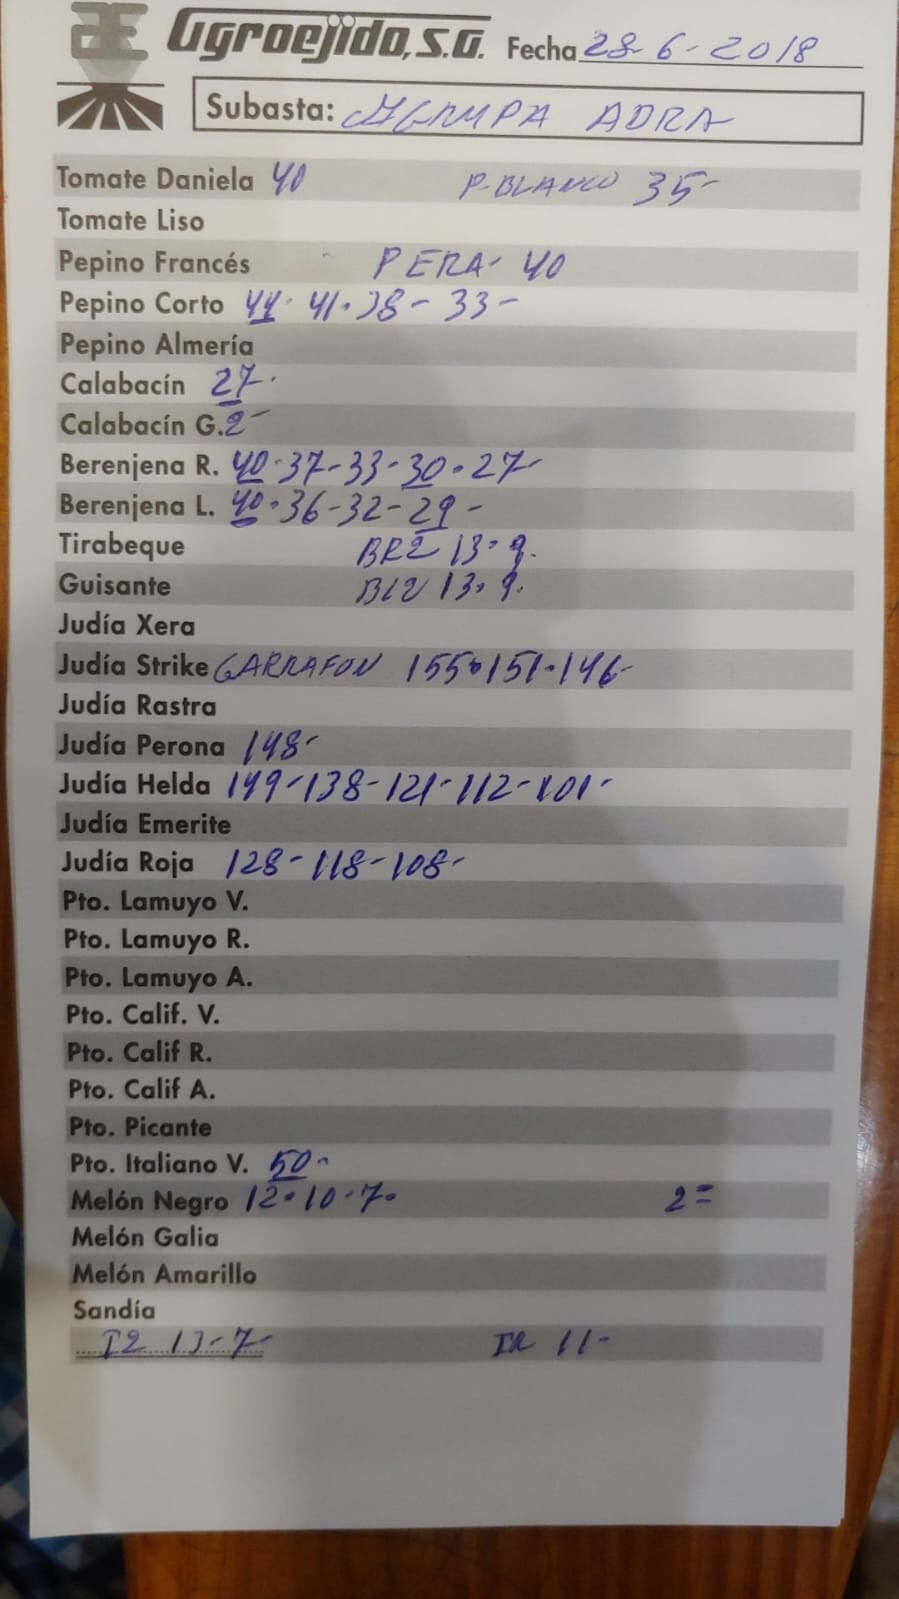 Agroejido, S.A. Fecha 28-6-2018
Subasta: AGRUPA ADRA
Tomate Daniela 40 P-BLANCO 35-
Tomate Liso
Pepino Francés PERA- 40
Pepino Corto 44. 41. 38- 33-
Pepino Almería
Calabacín 27.
Calabacín G. 2-
Berenjena R. 40. 37-33-30. 27-
Berenjena L. 40. 36-32-29-
Tirabeque BR2 13. 9.
Guisante BL2 13. 9.
Judía Xera
Judía Strike GARRAFON 155. 151. 146-
Judía Rastra
Judía Perona 148-
Judía Helda 149-138-121-112-101-
Judía Emerite
Judía Roja 128-118-108-
Pto. Lamuyo V.
Pto. Lamuyo R.
Pto. Lamuyo A.
Pto. Calif. V.
Pto. Calif R.
Pto. Calif A.
Pto. Picante
Pto. Italiano V. 50-
Melón Negro 12. 10. 7. 2=
Melón Galia
Melón Amarillo
Sandía
T2 13-7- 11-